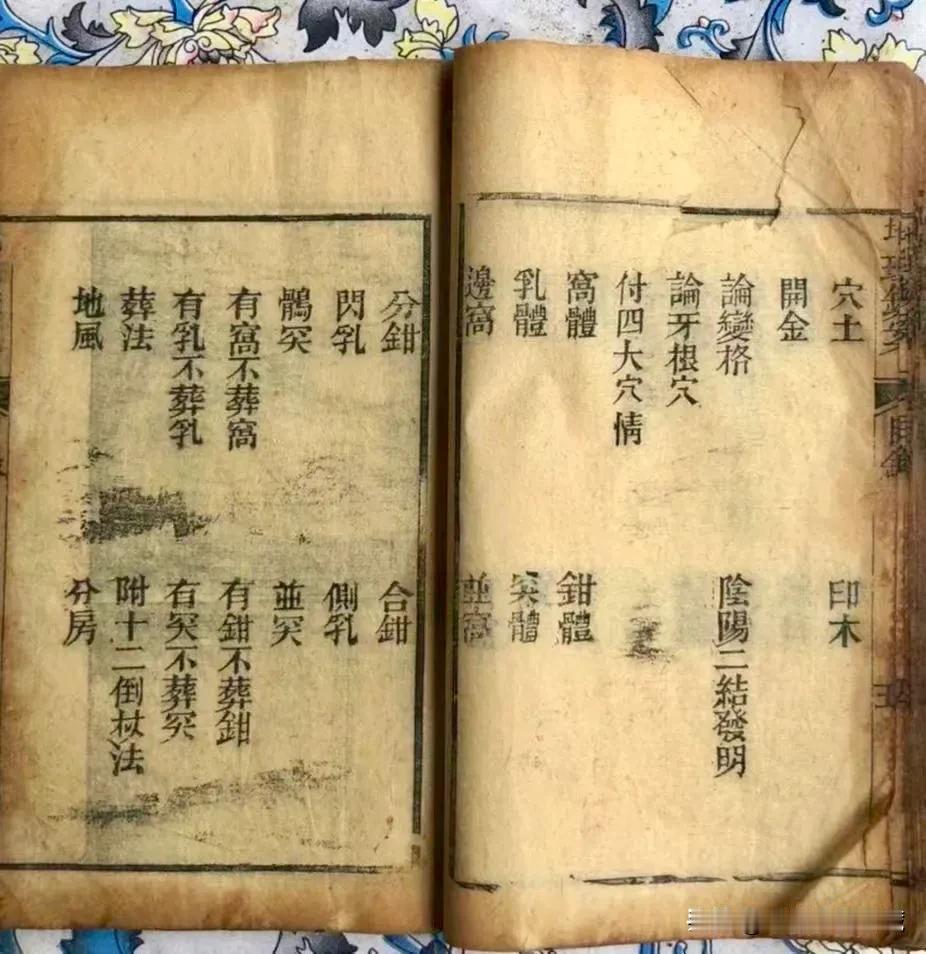 目錄
穴土 印木
開金
論變格 陰陽二結發明
論牙根穴
付四大穴情
窩體 鉗體
乳體 突體
邊窩 並窩
分鉗 合鉗
閃乳 側乳
鶻突 並突
有窩不葬窩 有鉗不葬鉗
有乳不葬乳 有突不葬突
葬法 附十二倒杖法
地風 分房